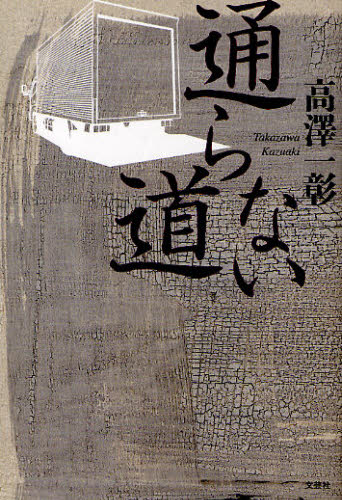 通らない
道
高澤一彰
Takazawa
Kazuaki
文芸社